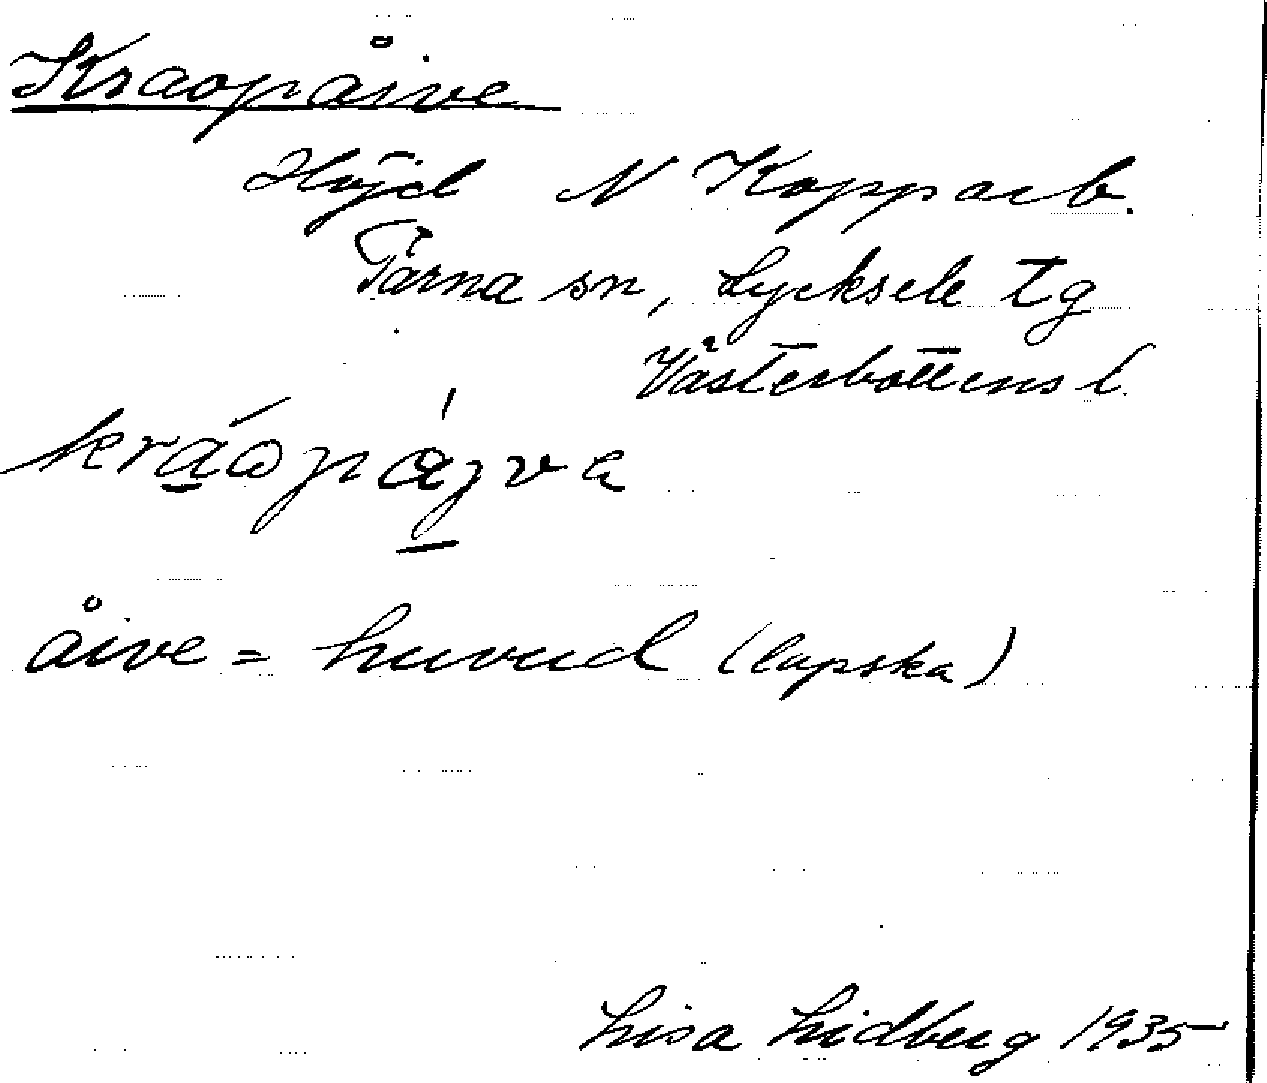 Kraopåive
Höjd N Kopparb.
Tärna sn, Lycksele tg
Västerbottens l.
åive = huvud (lapska)
Lisa Lidberg 1935